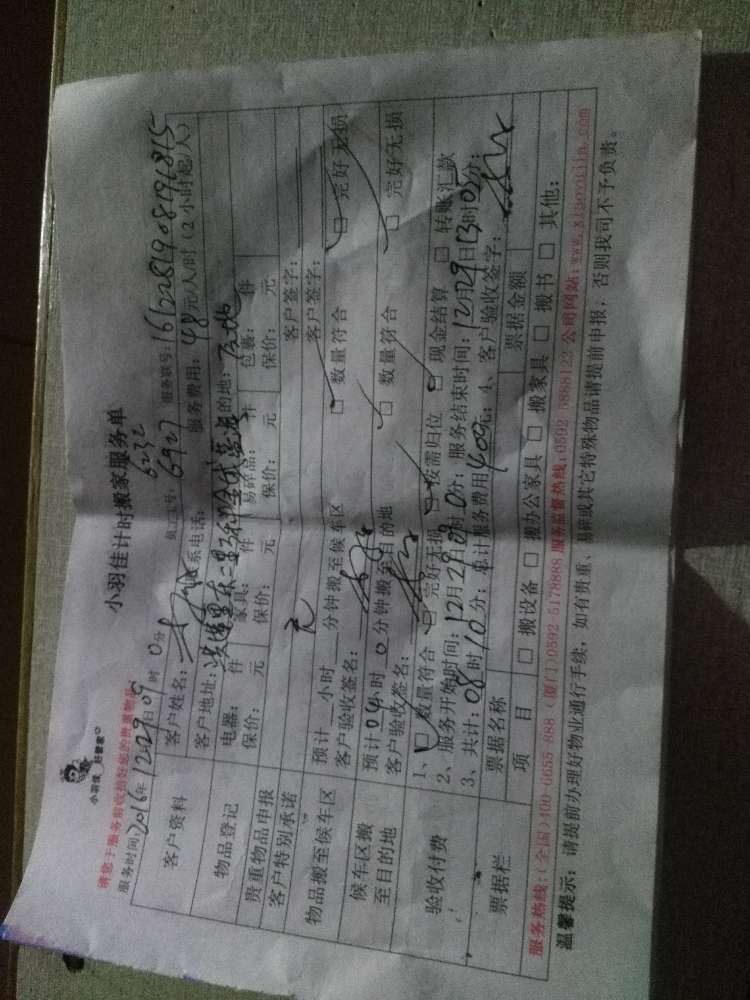 小羽佳 起管家
小羽佳计时搬家服务单
请您于服务前收拾好您的贵重物品
6232
服务时间:2016年12月29日09时0分 员工工号:6927 服务联号:1612281908191815
客户资料 客户姓名: 联系电话: 服务费用:48元/人/时(2小时起/人)
客户地址: 目的地:
物品登记 电器: 件 家具: 件 易碎品: 件 包裹: 件
保价: 元 保价: 元 保价: 元 保价: 元
贵重物品申报 客户签字:
客户特别承诺 无 客户签字:
物品搬至候车区 预计 小时 分钟搬至候车区 □数量符合 □完好无损
客户验收签名:
候车区搬至目的地 预计04小时0分钟搬至目的地 □数量符合 □完好无损
客户验收签名:
验收付费 1、□数量符合 □完好无损 □按需归位 □现金结算 □转账汇款
2、服务开始时间:12月29日09时0分;服务结束时间:12月29日13时05分;
3、共计:08时10分;总计服务费用400元;4、客户验收签字:
票据栏 票据名称 票据金额
项 目 □搬设备 □搬办公家具 □搬家具 □搬书 □其他:
服务热线:(全国)400-6655-888 (厦门)0592 5178888 服务监督热线:0592 5888123 公司网站:www.xiaoyujia.com
温馨提示:请提前办理好物业通行手续,如有贵重、易碎或其它特殊物品请提前申报,否则我司不予负责。